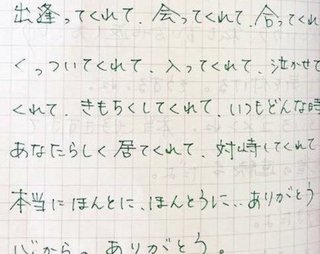 出逢ってくれて、会ってくれて、合ってくれ
くっついてくれて、入ってくれて、泣かせて
くれて、きもちくしてくれて、いつもどんな時
あなたらしく居てくれて、対峙してくれて
本当にほんとに、ほんとうに…ありがとう
心から。ありがとう。